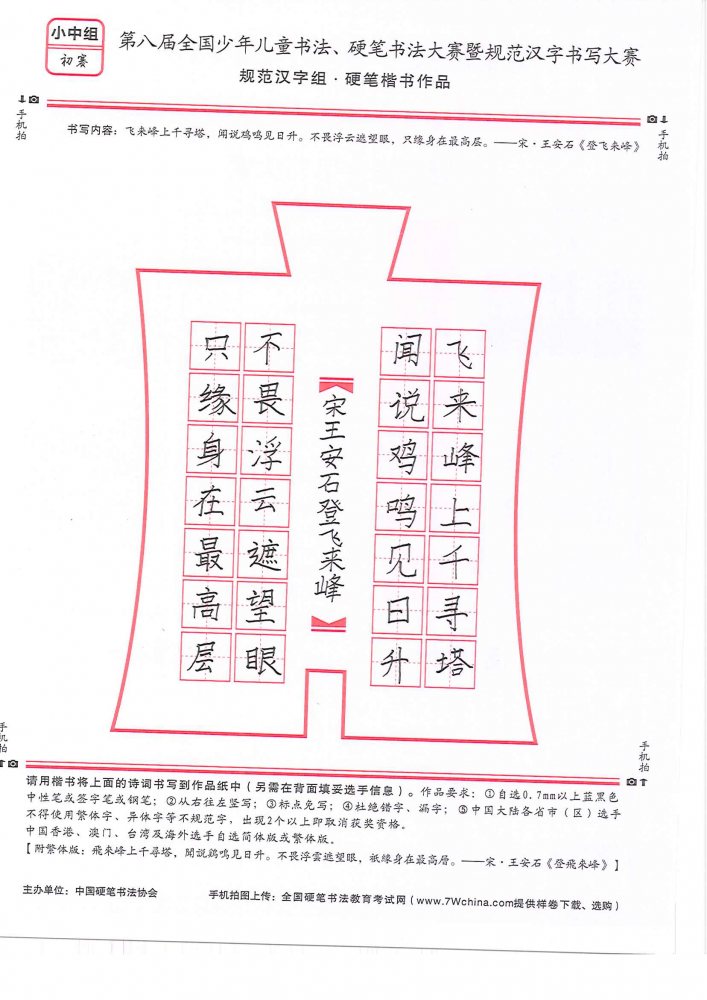 小中组
初赛
第八届全国少年儿童书法、硬笔书法大赛暨规范汉字书写大赛
规范汉字组·硬笔楷书作品
手机拍
手机拍
书写内容：飞来峰上千寻塔，闻说鸡鸣见日升。不畏浮云遮望眼，只缘身在最高层。——宋·王安石《登飞来峰》
飞来峰上千寻塔
闻说鸡鸣见日升
宋王安石登飞来峰
不畏浮云遮望眼
只缘身在最高层
手机拍
手机拍
请用楷书将上面的诗词书写到作品纸中（另需在背面填妥选手信息）。作品要求：①自选0.7mm以上蓝黑色
中性笔或签字笔或钢笔；②从右往左竖写；③标点免写；④杜绝错字、漏字；⑤中国大陆各省市（区）选手
不得使用繁体字、异体字等不规范字，出现2个以上即取消获奖资格。
中国香港、澳门、台湾及海外选手自选简体版或繁体版。
【附繁体版：飛來峰上千尋塔，聞説鷄鳴見日昇。不畏浮雲遮望眼，衹緣身在最高層。——宋·王安石《登飛來峰》】
主办单位：中国硬笔书法协会
手机拍图上传：全国硬笔书法教育考试网（www.7Wchina.com提供样卷下载、选购）